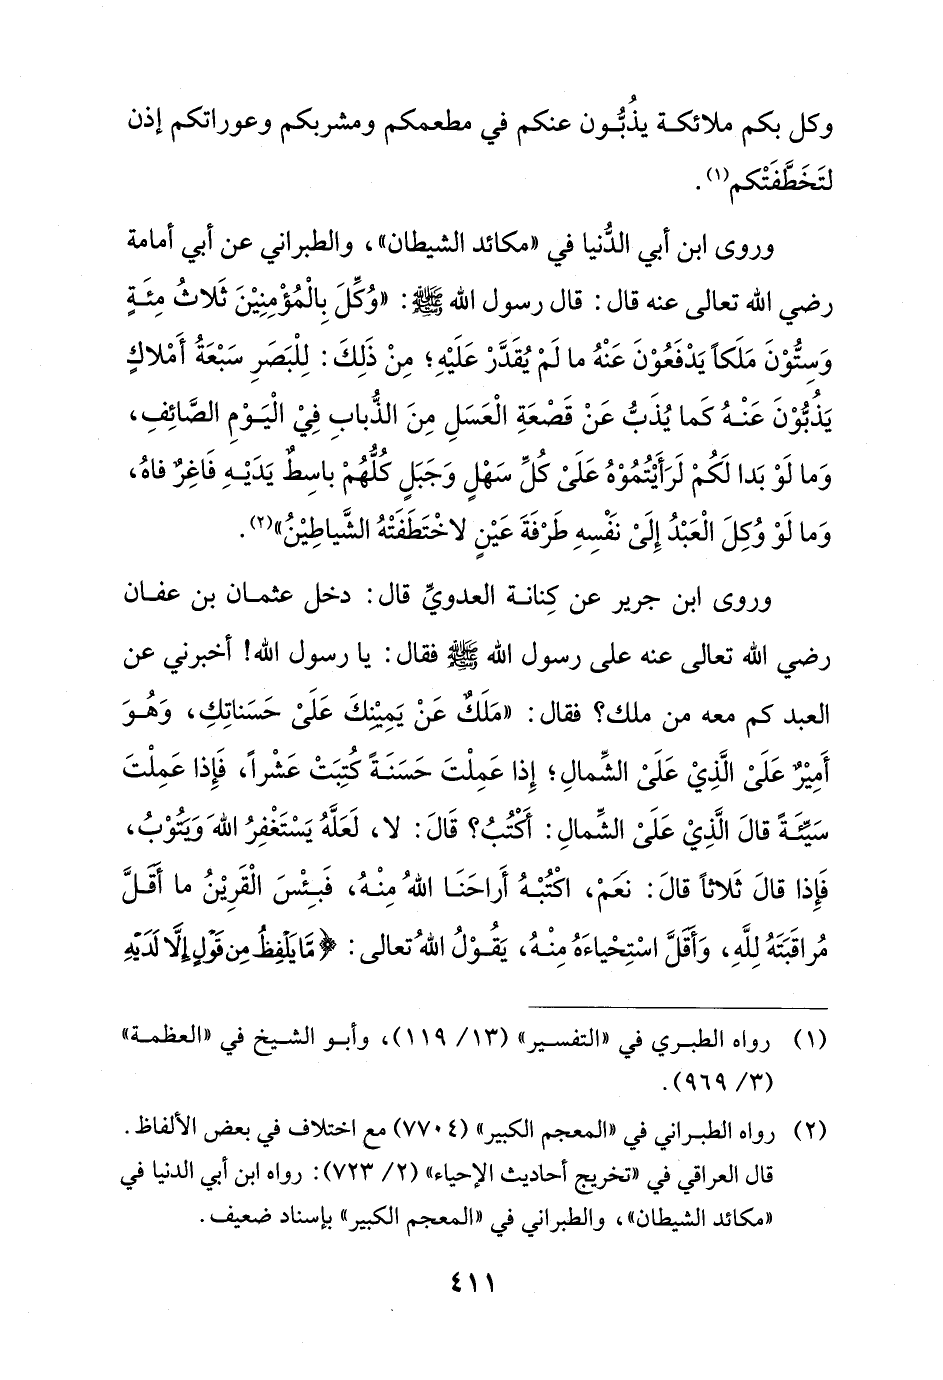 وكل بكم ملائكة يذُبُّون عنكم في مطعمكم ومشربكم وعوراتكم إذن
لتَخَطَّفَتْكم(١).
وروى ابن أبي الدُّنيا في «مكائد الشيطان»، والطبراني عن أبي أمامة
رضي الله تعالى عنه قال: قال رسول الله ﷺ: «وُكِّلَ بِالْمُؤْمِنِيْنَ ثَلاثُ مِئَةٍ
وَسِتُّوْنَ مَلَكاً يَدْفَعُوْنَ عَنْهُ ما لَمْ يُقَدَّرْ عَلَيْهِ؛ مِنْ ذَلِكَ: لِلْبَصَرِ سَبْعَةُ أَمْلاكٍ
يَذُبُّوْنَ عَنْهُ كَما يُذَبُّ عَنْ قَصْعَةِ الْعَسَلِ مِنَ الذُّبابِ فِيْ الْيَوْمِ الصَّائِفِ،
وَما لَوْ بَدا لَكُمْ لَرَأَيْتُمُوْهُ عَلَىْ كُلِّ سَهْلٍ وَجَبَلٍ كُلُّهُمْ باسِطٌ يَدَيْهِ فَاغِرٌ فاهُ،
وَما لَوْ وُكِلَ الْعَبْدُ إِلَىْ نَفْسِهِ طَرْفَةَ عَيْنٍ لاخْتَطَفَتْهُ الشَّياطِيْنُ»(٢).
وروى ابن جرير عن كِنانة العدويِّ قال: دخل عثمان بن عفان
رضي الله تعالى عنه على رسول الله ﷺ فقال: يا رسول الله! أخبرني عن
العبد كم معه من ملك؟ فقال: «مَلَكٌ عَنْ يَمِيْنِكَ عَلَىْ حَسَناتِكِ، وَهُوَ
أَمِيْرٌ عَلَىْ الَّذِيْ عَلَىْ الشِّمالِ؛ إِذا عَمِلْتَ حَسَنَةً كُتِبَتْ عَشْراً، فَإِذا عَمِلْتَ
سَيِّئَةً قالَ الَّذِيْ عَلَىْ الشِّمالِ: أَكْتُبُ؟ قالَ: لا، لَعَلَّهُ يَسْتَغْفِرُ اللهَ وَيَتُوْبُ،
فَإِذا قالَ ثَلاثاً قالَ: نَعَمْ، اكْتُبْهُ أَراحَنَا اللهُ مِنْهُ، فَبِئْسَ الْقَرِيْنُ ما أَقَلَّ
مُراقَبَتَهُ لِلَّهِ، وَأَقَلَّ اسْتِحْياءَهُ مِنْهُ، يَقُوْلُ اللهُ تعالى: ﴿مَّا يَلْفِظُ مِن قَوْلٍ إِلَّا لَدَيْهِ
(١) رواه الطبري في «التفسير» (١٣/ ١١٩)، وأبو الشيخ في «العظمة»
(٣/ ٩٦٩).
(٢) رواه الطبراني في «المعجم الكبير» (٧٧٠٤) مع اختلاف في بعض الألفاظ.
قال العراقي في «تخريج أحاديث الإحياء» (٢/ ٧٢٣): رواه ابن أبي الدنيا في
«مكائد الشيطان»، والطبراني في «المعجم الكبير» بإسناد ضعيف.
٤١١